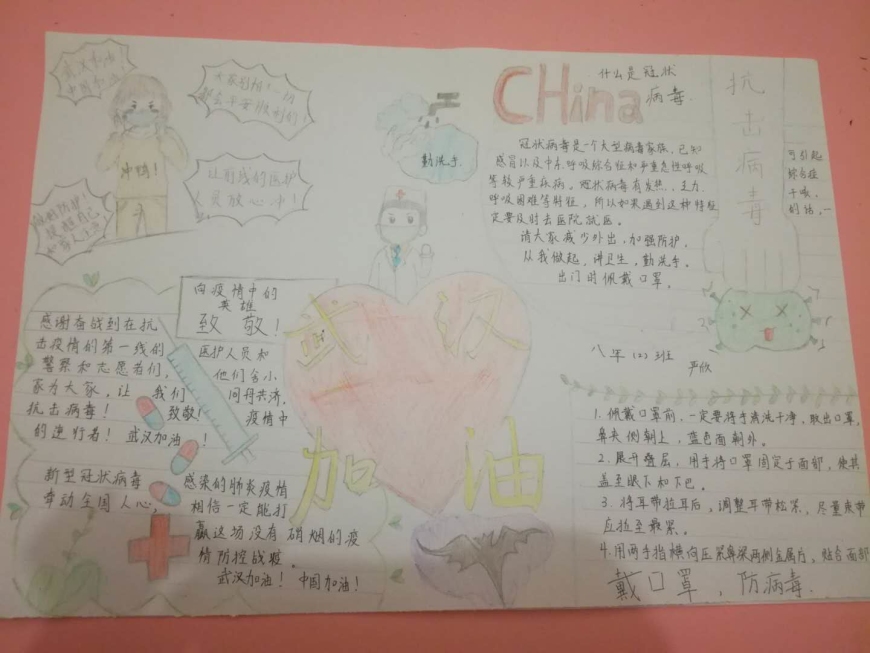 武汉加油
中国加油
大家别怕！一切
都会平安胜利的！
冲鸭！
让前线的医护
人员放心中！
做好防护
提醒自己
和家人注意！
勤洗手
CHina
什么是冠状
病毒
冠状病毒是一个大型病毒家族，已知
感冒以及中东呼吸综合征和严重急性呼吸
等较严重疾病。冠状病毒有发热、乏力、
呼吸困难等特征，所以如果遇到这种情况
定要及时去医院就医。
请大家减少外出，加强防护，
从我做起，讲卫生，勤洗手。
出门时佩戴口罩。
可引起
综合征
干咳、
的话，一
抗击病毒
八年（2）班
严欣
向疫情中的
英雄
致敬！
感谢奋战到在抗 医护人员和
击疫情的第一线的 他们舍小
警察和志愿者们，
家为大家，让 我们 同舟共济，
抗击病毒！ 致敬！ 疫情中
的逆行者！ 武汉加油！
武汉
加油
新型冠状病毒 感染的肺炎疫情
牵动全国人心， 相信一定能打
赢这场没有硝烟的疫
情防控战疫。
武汉加油！ 中国加油！
1. 佩戴口罩前，一定要将手清洗干净，取出口罩，
鼻夹侧朝上，蓝色面朝外。
2. 展开叠层，用手将口罩固定于面部，使其
盖至眼下和下巴。
3. 将耳带拉耳后，调整耳带松紧，尽量束带
应拉至最紧。
4. 用两手指横向压紧鼻梁两侧金属片，贴合面部
戴口罩，防病毒.